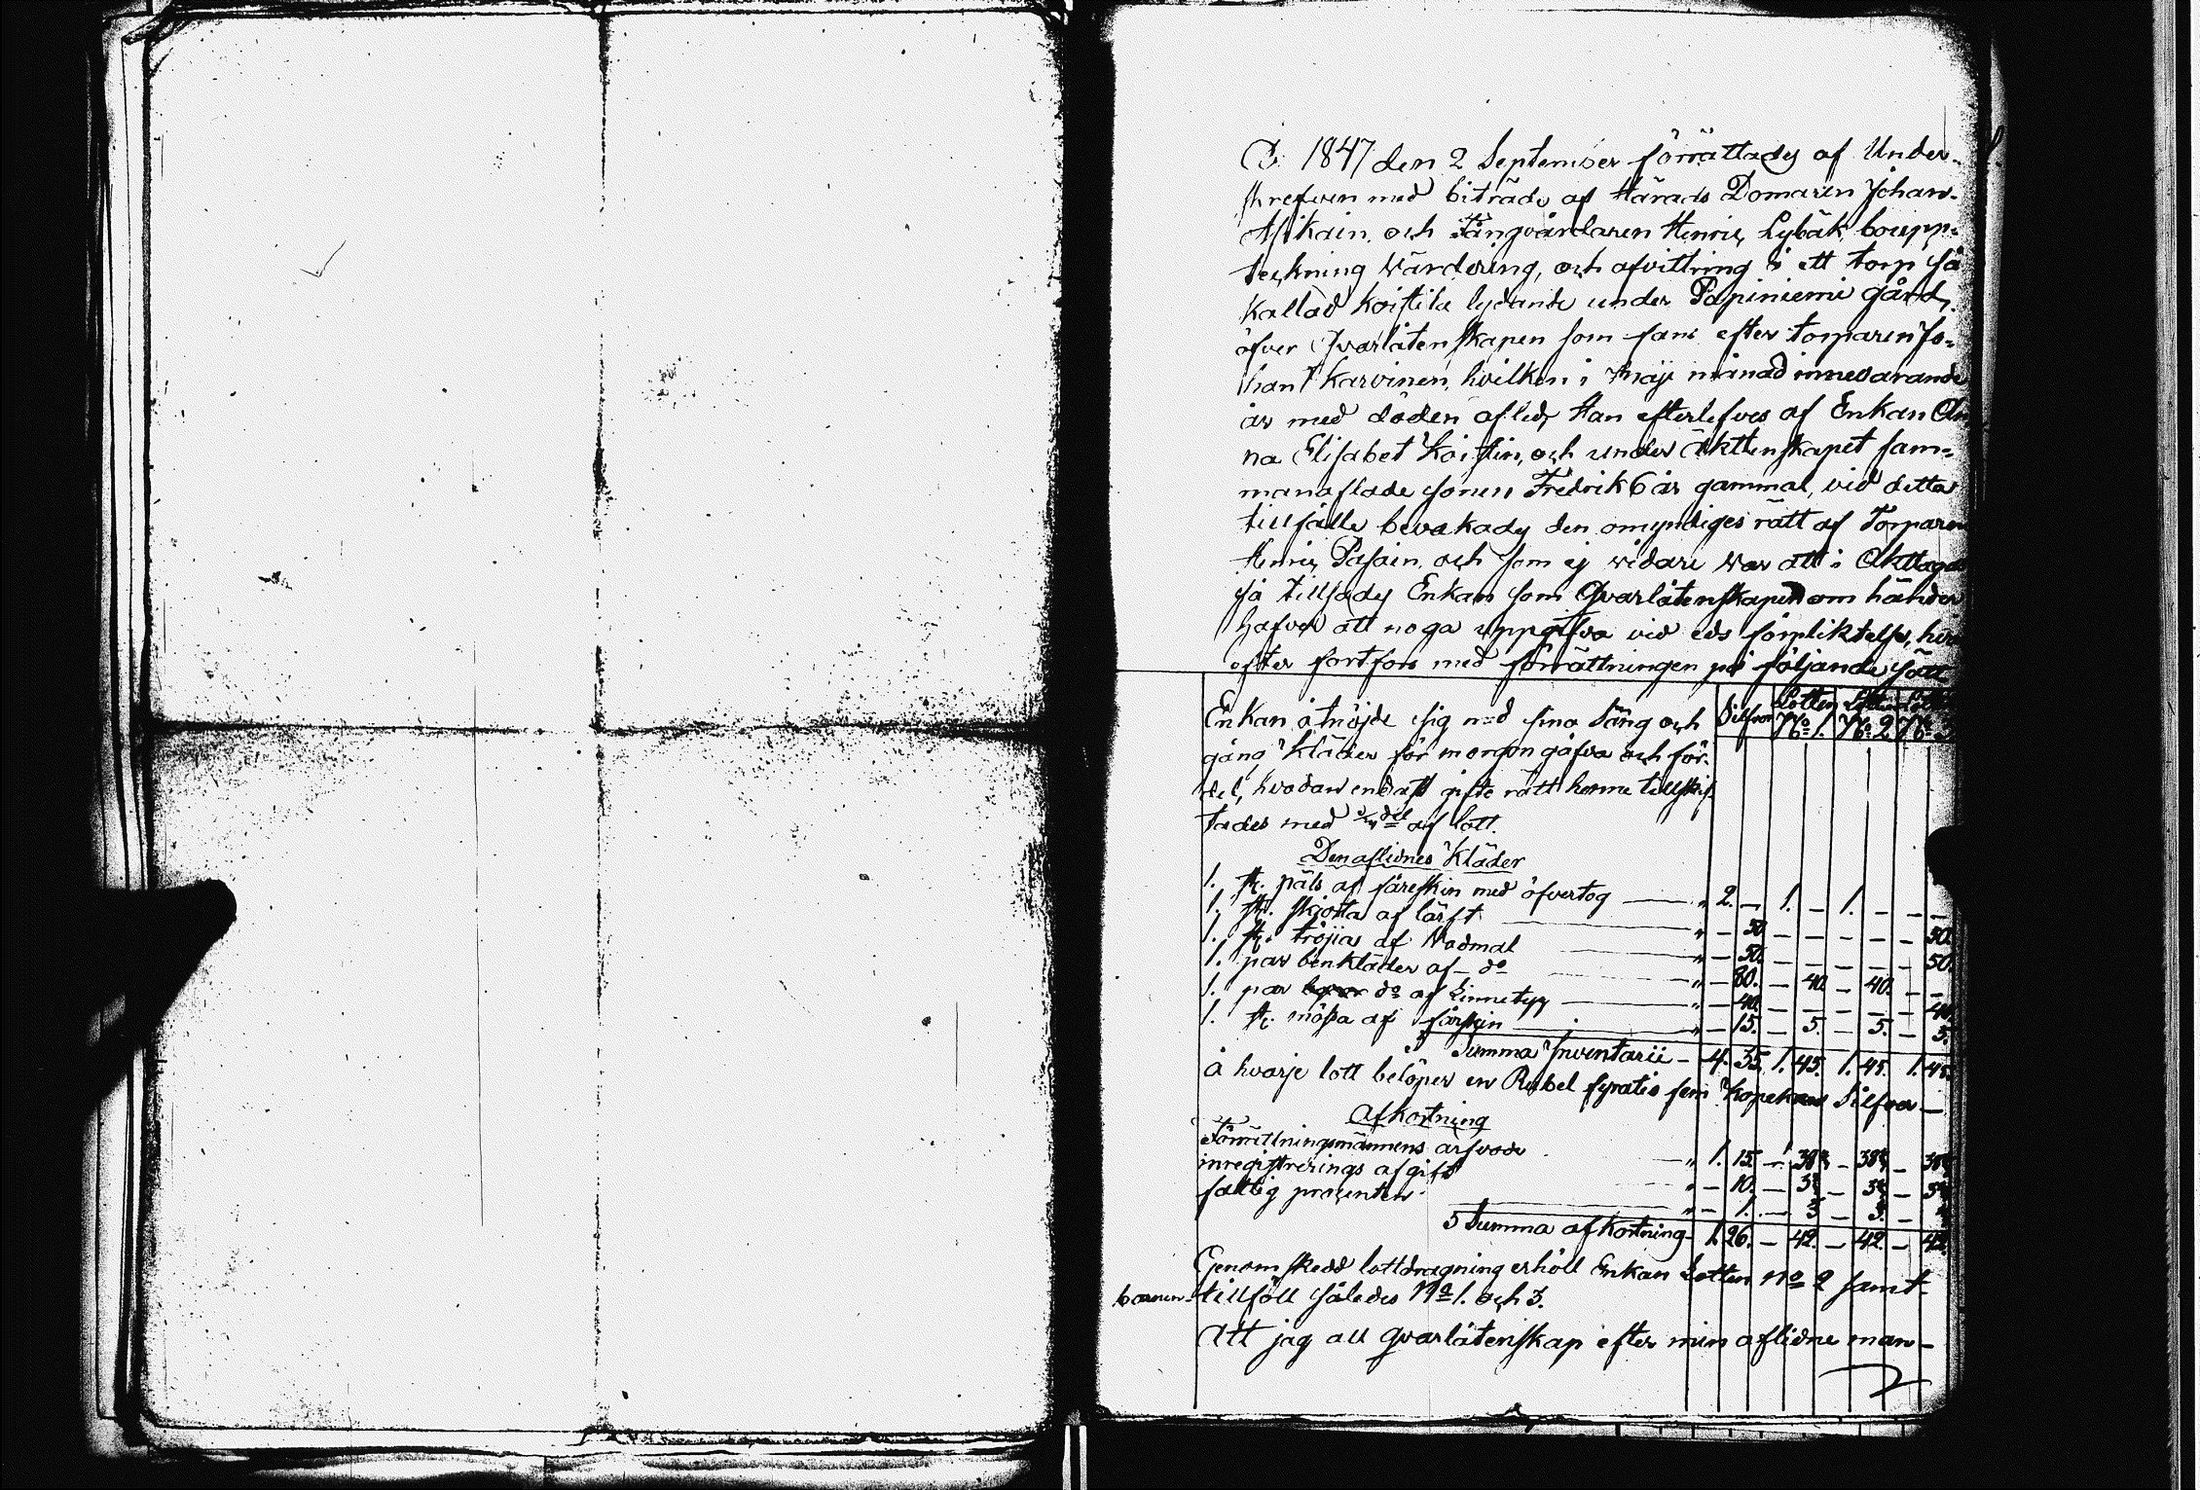 1847 den 2 September förrättades af Under-
skrefven med biträde af Härads Domaren Johan
Asikain. och Fångvårdaren Henric Lybäk boupp-
teckning Wärdering, och afvittring i ett torp så
kallad Koistila lydande under Papiniemi gård,
öfver Qvarlåtenskapen som fans efter torparen Jo-
han Karvinen, hvilken i Maji månad innevarande
år med döden afled, Han efterlefves af Enkan An
na Elisabet Koistin, och under Äkttenskapet sam-
manaflade sonen Fredrik 6 år gammal, vid detta
tillfälle bevakades den omyndiges rätt af Torparen
Henric Pasain. och som ej vidare var att i Akttaga
så tillsades Enkan som Qvarlåtenskapen om händer
hafver att noga uppgifva vid eds förpliktelse, hvar
efter fortfors med förrättningen på följande sätt
Enkan åtnöjde sig med sina Säng och Silfver Lotten No 1. Lotten No 2 Lotten No 3
gång kläder för morgon gåfva och för-
del, hvadan endast gifto rätt henne tillskif-
tades med del af lott.
Den aflidnes Kläder
1. st. päls af fåreskin med öfvertog — " 2. — 1. — 1. — — —
1. st. skjorta af lärft — " — 50 — — — — — 50.
1. st. tröjia af Wadmal — " — 50. — — — — — 50.
1. par benkläder af do — " — 80. — 40. — 40. — —
1. par do af Linnetyg — " — 40. — — — — — 40.
1. st. mössa af fårskin — " — 15. — 5. — 5. — 5.
Summa Inventarii — 4. 35. 1. 45. 1. 45. 1. 45.
å hvarje lott belöper en Rubel fyratio fem Kopek Silfver —
Afkortning
Förrättningsmännens arfvode — " 1. 15. — 38 — 38 — 38
inregistrerings afgift " — 10. — 3 — 3 — 3
fattig procenten " — 1. — —
S Summa afkortning — 1. 26. — 42. — 42. — 42.
Genom skedd lottdragning erhöll Enkan Lotten No 2 samt
barnen tillföll således No 1. och 3.
Att jag all qvarlåtenskap efter min aflidne man —